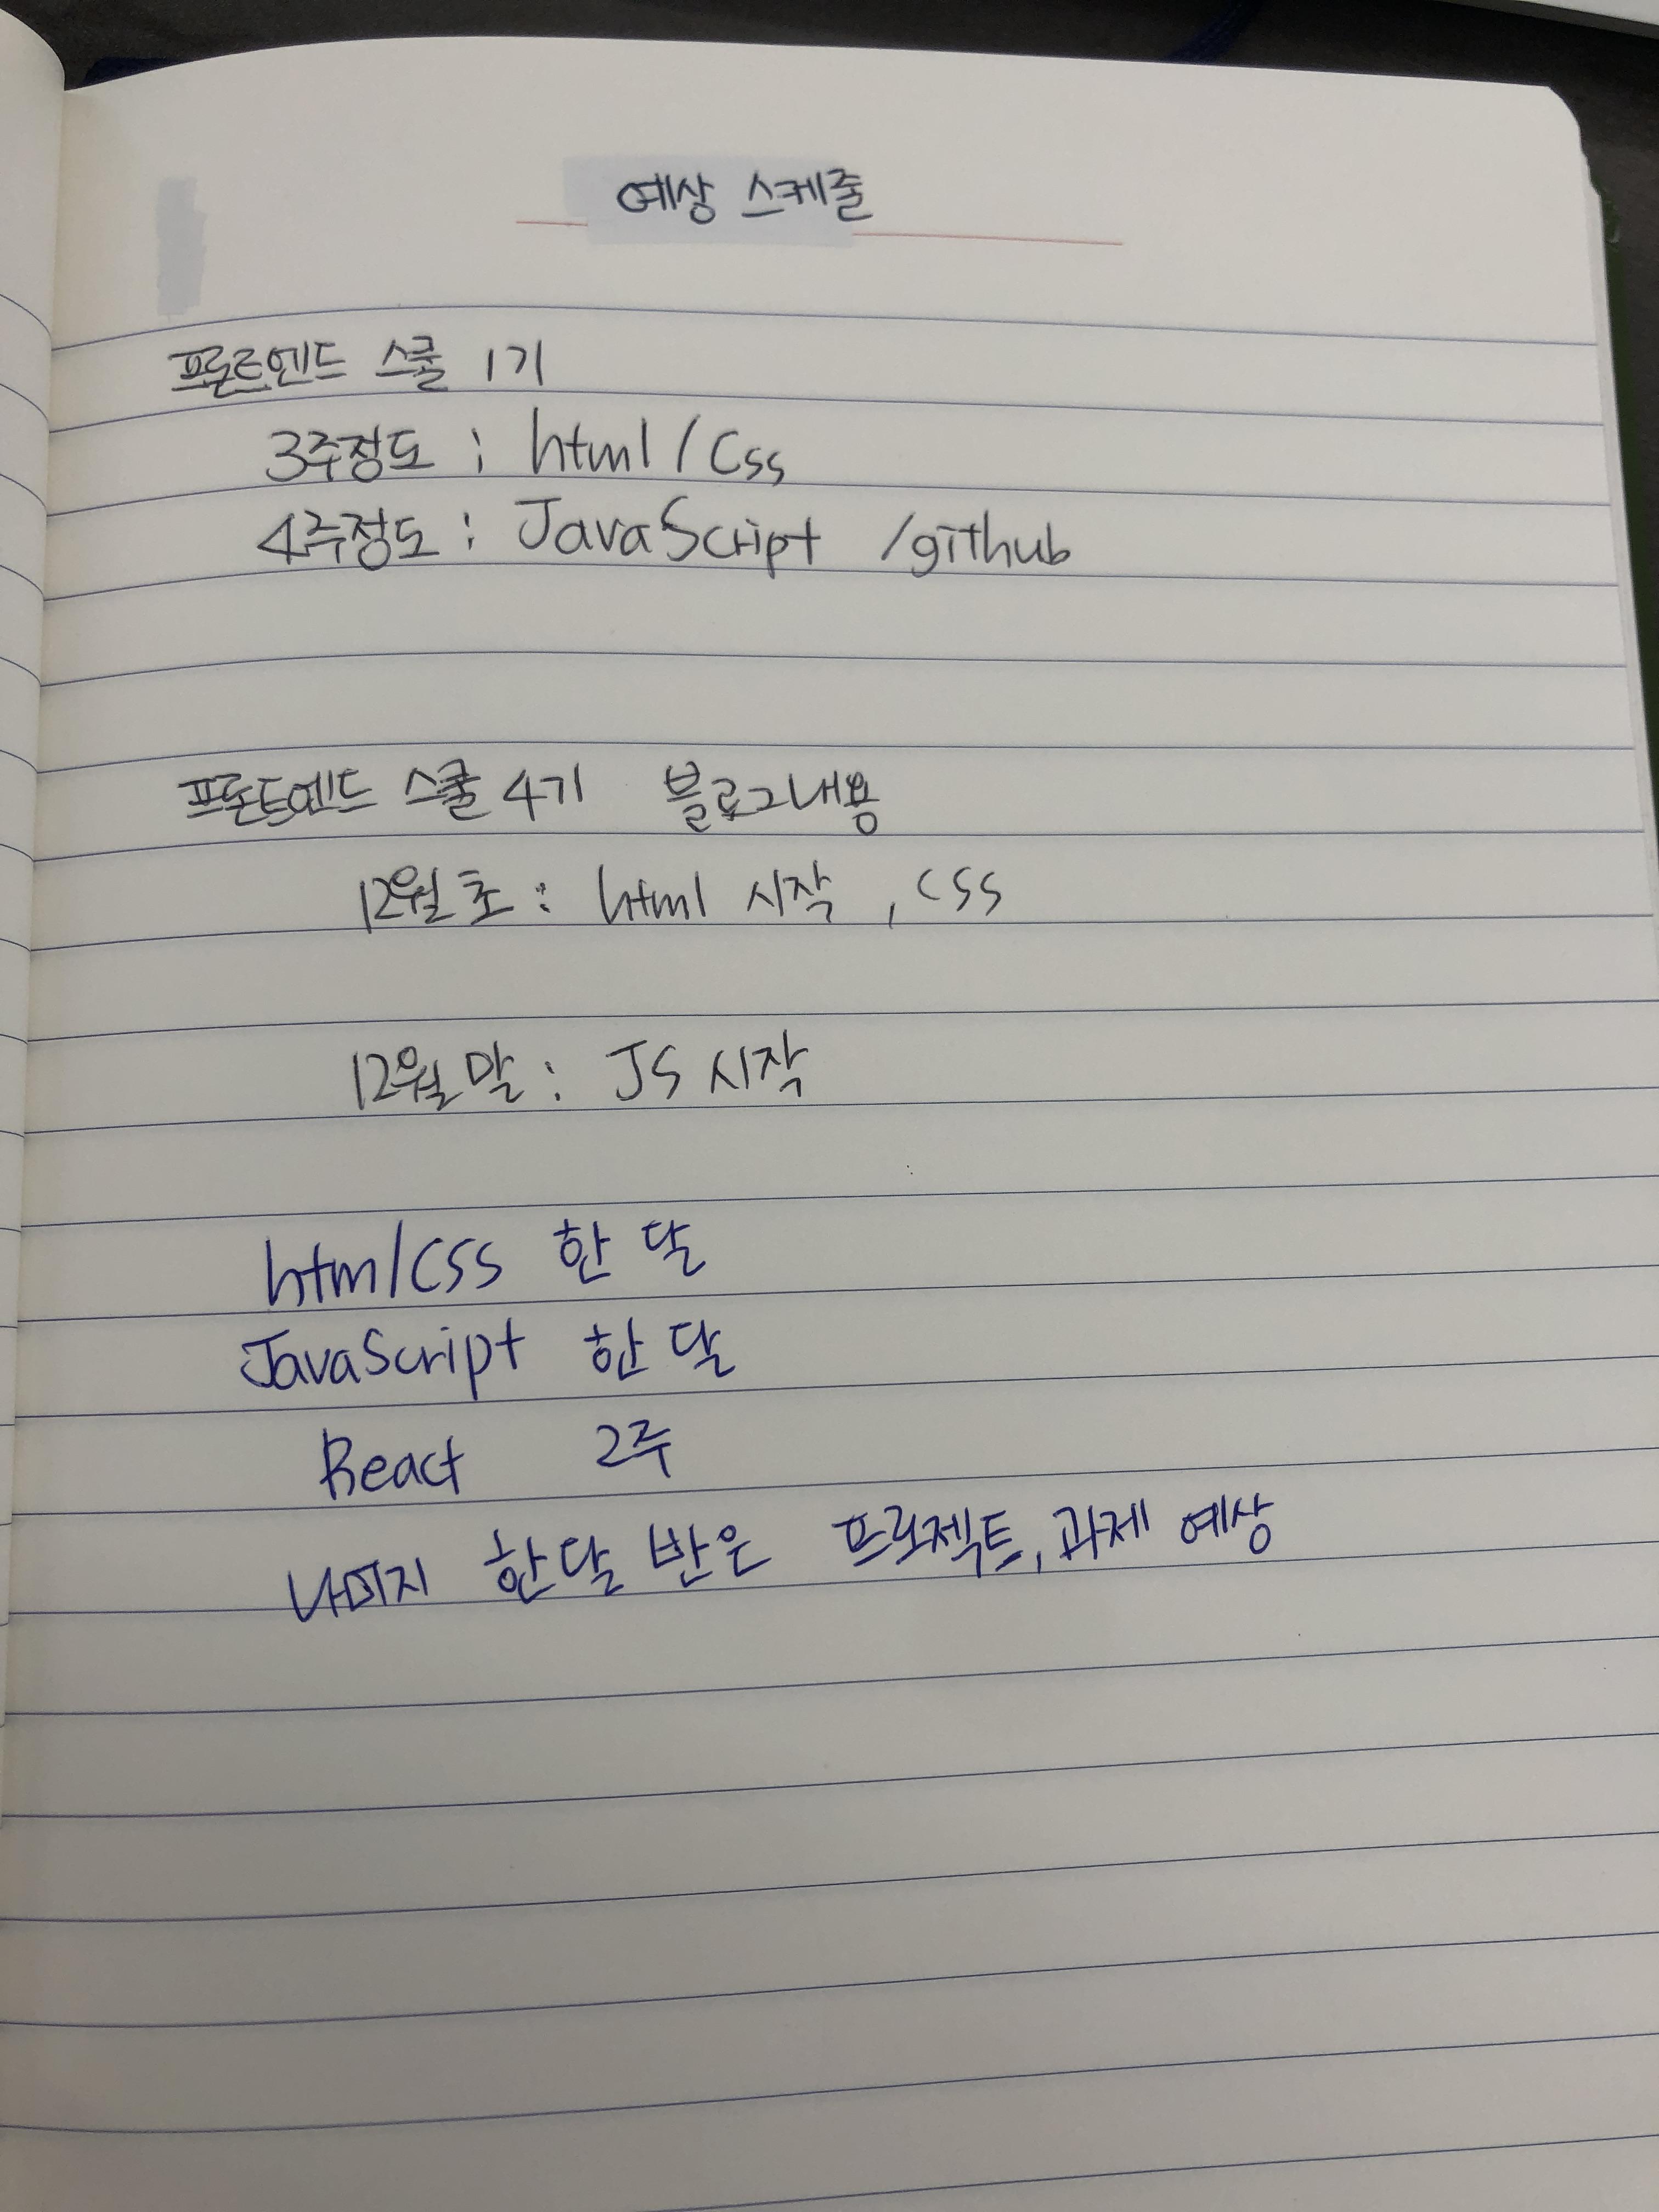 예상 스케줄
프론트엔드 스쿨 1기
3주정도 : html / Css
4주정도 : JavaScript /github
프론트엔드 스쿨 4기 블로그내용
12월 초 : html 시작 , CSS
12월 말 : JS 시작
html/CSS 한 달
JavaScript 한 달
React 2주
나머지 한달 반은 프로젝트, 과제 예상